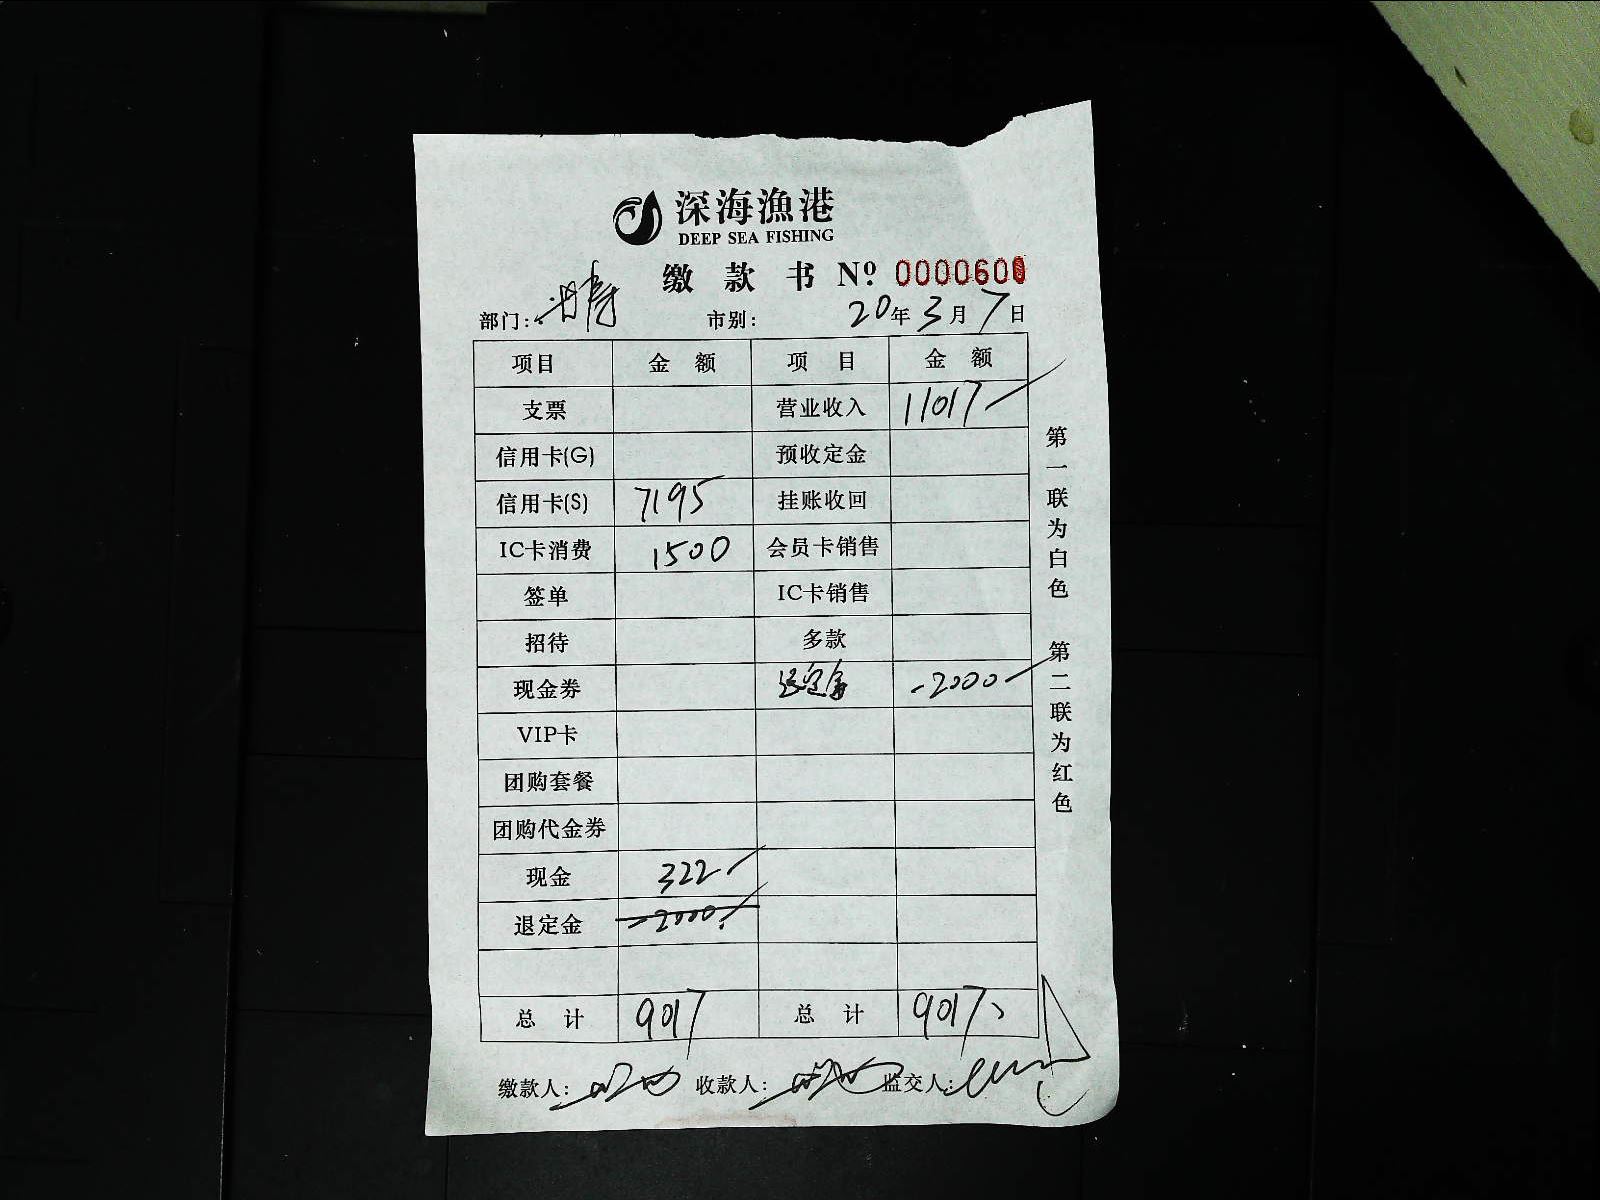 深海渔港
DEEP SEA FISHING
缴款书 Nº 000060
部门: 市别: 20年3月7日
项目 金额 项目 金额
支票 营业收入 11017
信用卡(G) 预收定金
信用卡(S) 7195 挂账收回
IC卡消费 1500 会员卡销售
签单 IC卡销售
招待 多款
现金券 退定金 -2000
VIP卡
团购套餐
团购代金券
现金 322
退定金 -2000
总计 9017 总计 9017
缴款人: 收款人: 监交人:
第一联为白色 第二联为红色